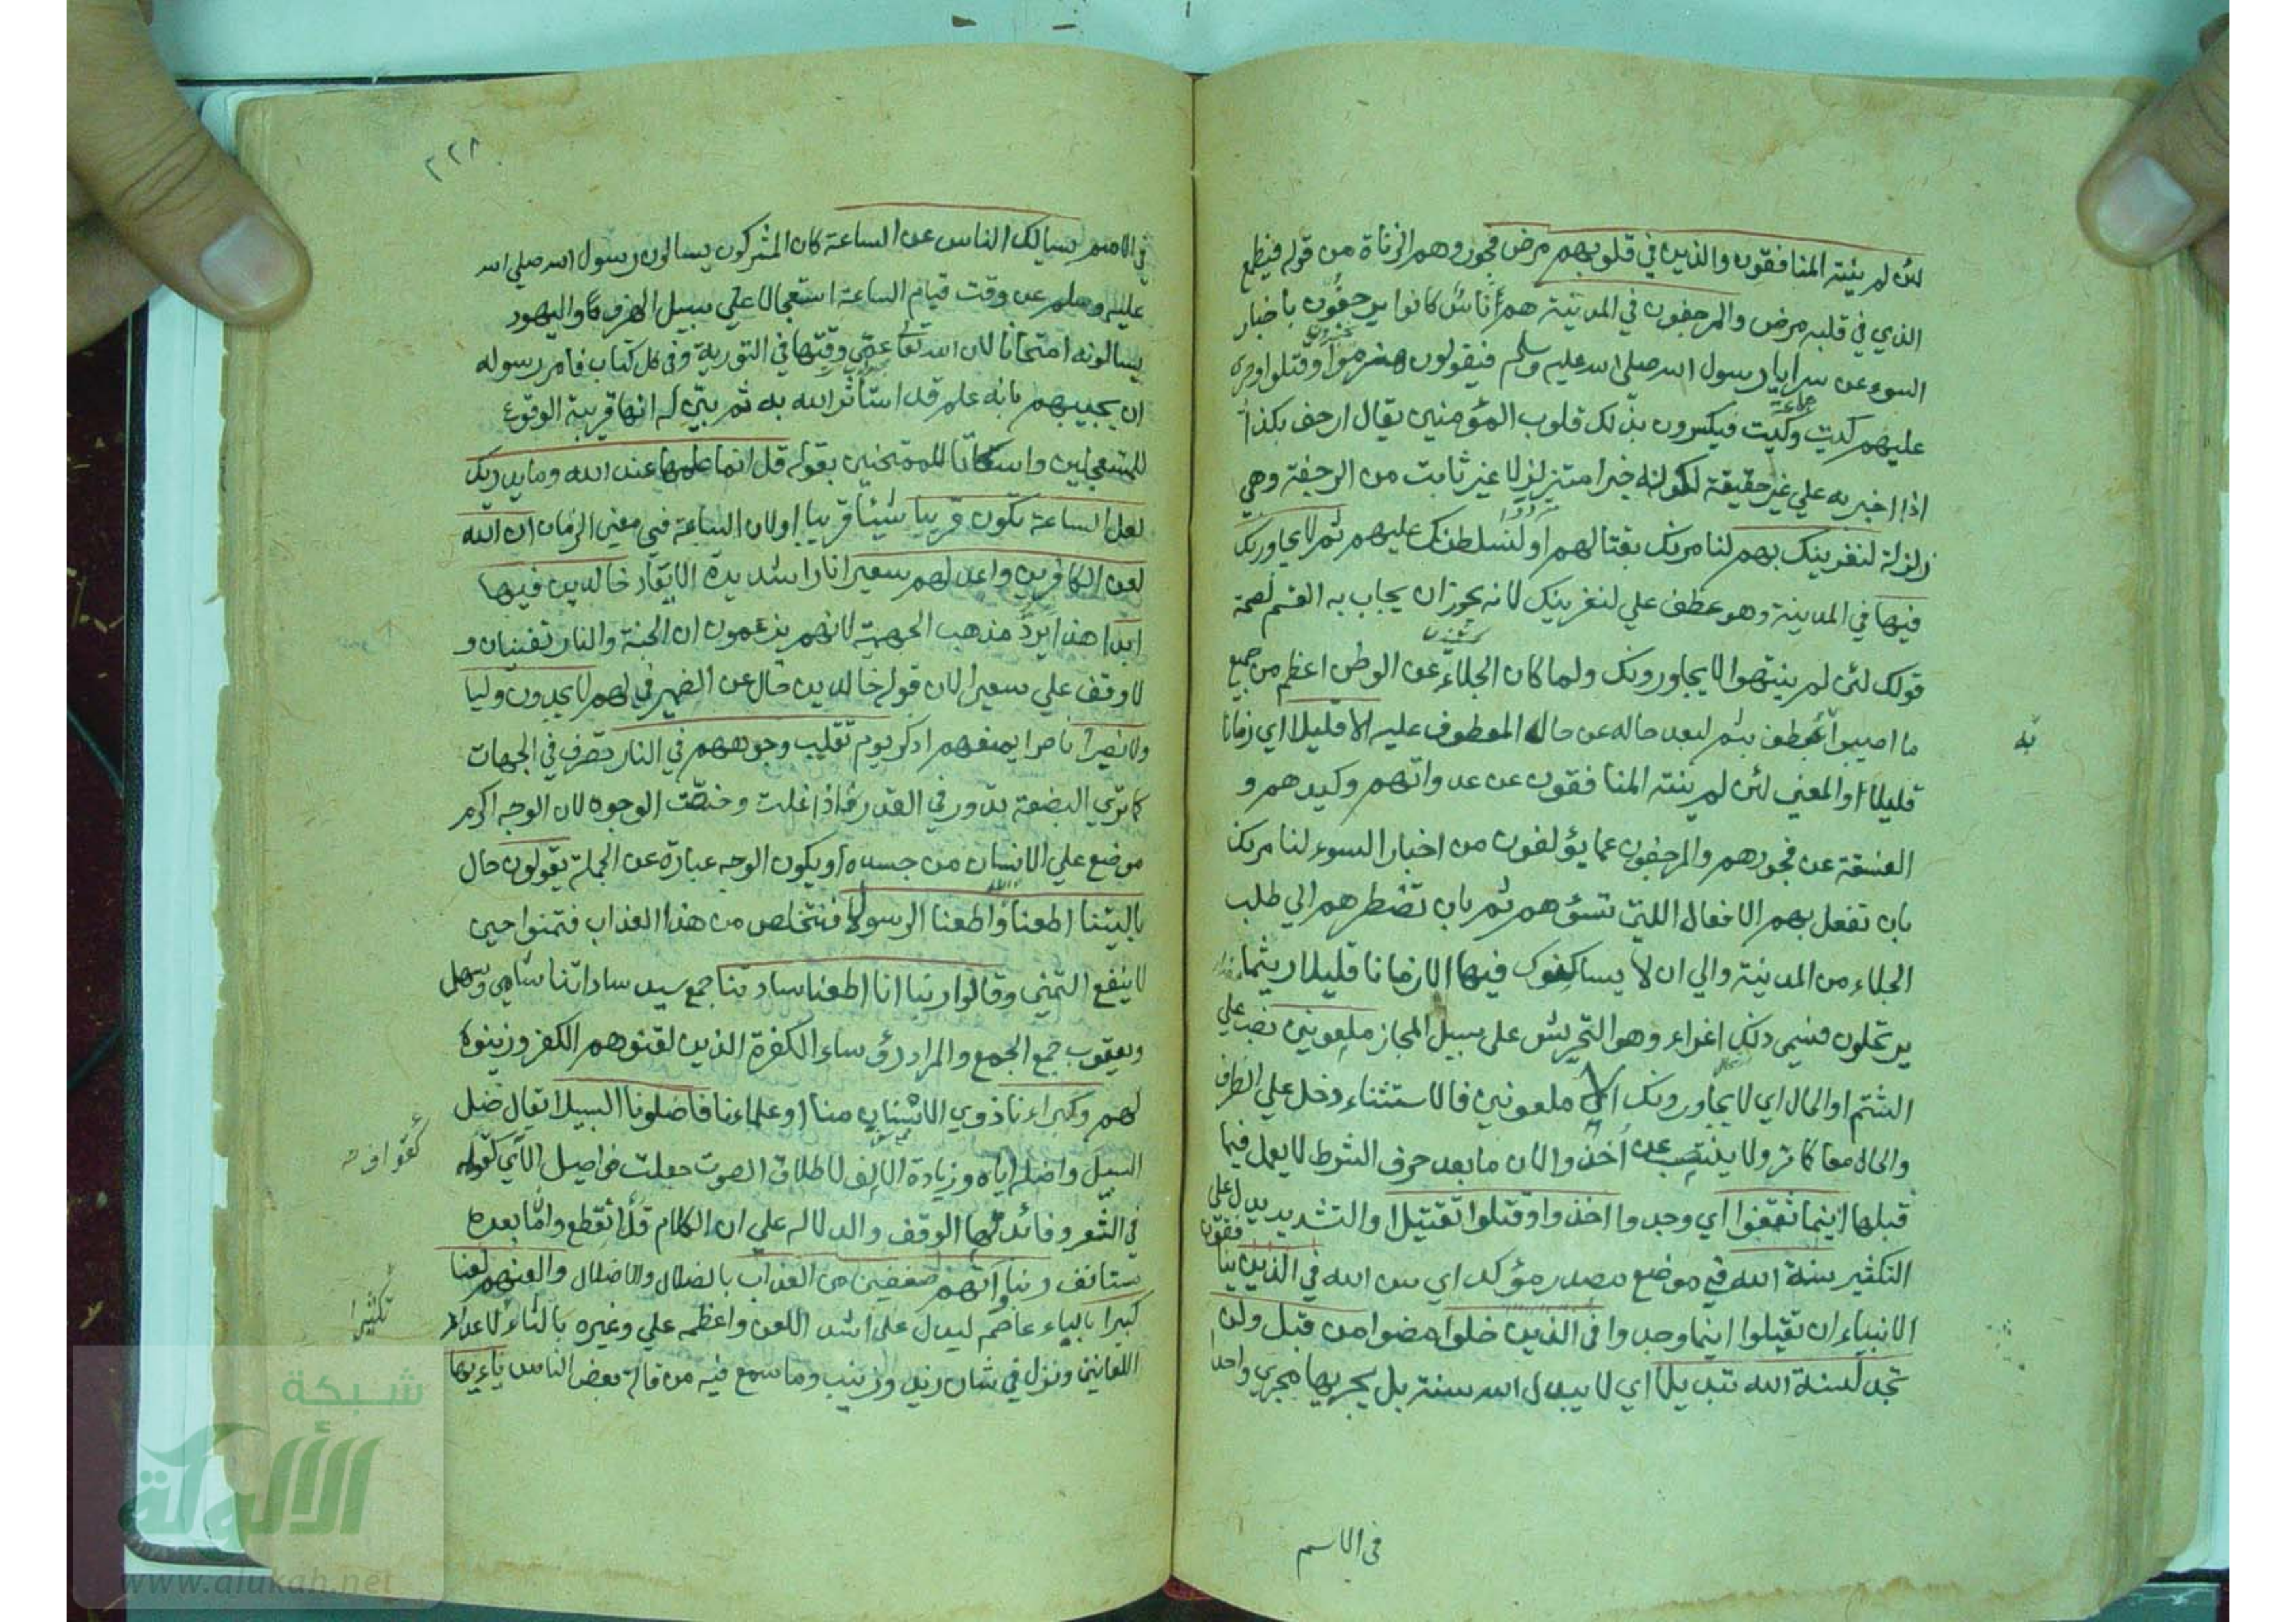 لئن لم ينته المنافقون والذين في قلوبهم مرض فجور وهم الزناة من قوله فيطمع
الذي في قلبه مرض والمرجفون في المدينة هم أناس كانوا يرجفون بأخبار
السوء عن سرايا رسول الله صلى الله عليه وسلم فيقولون هزموا وقتلوا وجرى
عليهم كيت وكيت فيكسرون بذلك قلوب المؤمنين يقال ارجف بكذا
اذا اخبر به علي غير حقيقة لكونه خبرا متزلزلا غير ثابت من الرجفة وهي
زلزلة لنغرينك بهم لنامرنك بقتالهم او لنسلطنك عليهم ثم لا يجاورنك
فيها في المدينة وهو عطف علي لنغرينك لانه يجوز ان يجاب به القسم لصحة
قولك لئن لم ينتهوا لا يجاورونك ولما كان الجلاء عن الوطن اعظم من جميع
ما اصيبوا به عطف بثم لبعد حاله عن حال المعطوف عليه الا قليلا اي زمانا
به
قليلا والمعني لئن لم ينته المنافقون عن عدواتهم وكيدهم و
الفسقة عن فجورهم والمرجفون عما يؤلفون من اخبار السوء لنامرنك
بان تفعل بهم الافعال اللتي تسؤهم ثم بان تضطرهم الي طلب
الجلاء من المدينة والي ان لا يساكنوك فيها الا زمانا قليلا ريثما
يرتحلون فسمي ذلك اغراء وهو التحريش على سبيل المجاز ملعونين نصب علي
الشتم او الحال اي لا يجاورونك الا ملعونين فالاستثناء دخل علي الظرف
والحال معا كما مر ولا ينتصب عن أخذوا لان ما بعد حرف الشرط لا يعمل فيما
قبلها اينما ثقفوا اي وجدوا اخذوا وقتلوا تقتيلا والتشديد يدل على
التكثير سنة الله في موضع مصدر مؤكد اي سن الله في الذين ينافقون
الانبياء ان تقتلوا اينما وجدوا في الذين خلوا مضوا من قبل ولن
تجد لسنة الله تبديلا اي لا يبدل الله سنته بل يجريها مجري واحدا
في الاسم
٢٢٨
في الامم يسالك الناس عن الساعة كان المشركون يسالون رسول الله صلي الله
عليه وسلم عن وقت قيام الساعة استعجالا علي سبيل الهزء واليهود
يسالونه امتحانا لان الله تعالى عمي وقتها في التورية وفي كل كتاب فامر رسوله
ان يجيبهم بانه علم قد استأثر الله به ثم بين له انها قريبة الوقوع
للمستعجلين واسكاتا للممتحنين بقوله قل انما علمها عند الله وما يدريك
لعل الساعة تكون قريبا شيئا قريبا او لان الساعة في معنى الزمان ان الله
لعن الكافرين واعد لهم سعيرا نارا شديدة الايقاد خالدين فيها
ابدا هذا يرد مذهب الجهمية لانهم يزعمون ان الجنة والنار تفنيان و
لا وقف علي سعيرا لان قوله خالدين حال عن الضمير في لهم لا يجدون وليا
ولا نصيرا ناصرا يمنعهم اذكر يوم تقلب وجوههم في النار تصرف في الجهات
كما تري البضعة تدور في القدر اذا غلت وخصت الوجوه لان الوجه اكرم
موضع علي الانسان من جسده او يكون الوجه عبارة عن الجملة يقولون حال
ياليتنا اطعنا الله واطعنا الرسولا فنتخلص من هذا العذاب فتمنوا حين
لا ينفع التمني وقالوا ربنا انا اطعنا سادتنا جمع سيد ساداتنا شامي وسهل
ويعقوب جمع الجمع والمراد رؤساء الكفرة الذين لقنوهم الكفر وزينوه
لهم وكبراءنا ذوي الاسنان منا او علماءنا فاضلونا السبيلا يقال ضل
السبيل واضله اياه وزيادة الالف لاطلاق الصوت جعلت فواصل الآي كقوله
في الشعر وفائدتها الوقف والدلالة علي ان الكلام قد انقطع وان ما بعده
مستانف ربنا اتهم ضعفين من العذاب بالضلال والاضلال والعنهم لعنا
كبيرا بالباء عاصم ليدل على اشد اللعن واعظمه علي وغيره بالثاء لاعداد
تكثيرا
اللعانين ونزل في شان زيد وزينب وما سمع فيه من قالة بعض الناس ياءيها
شبكة
الألوكة
www.alukah.net